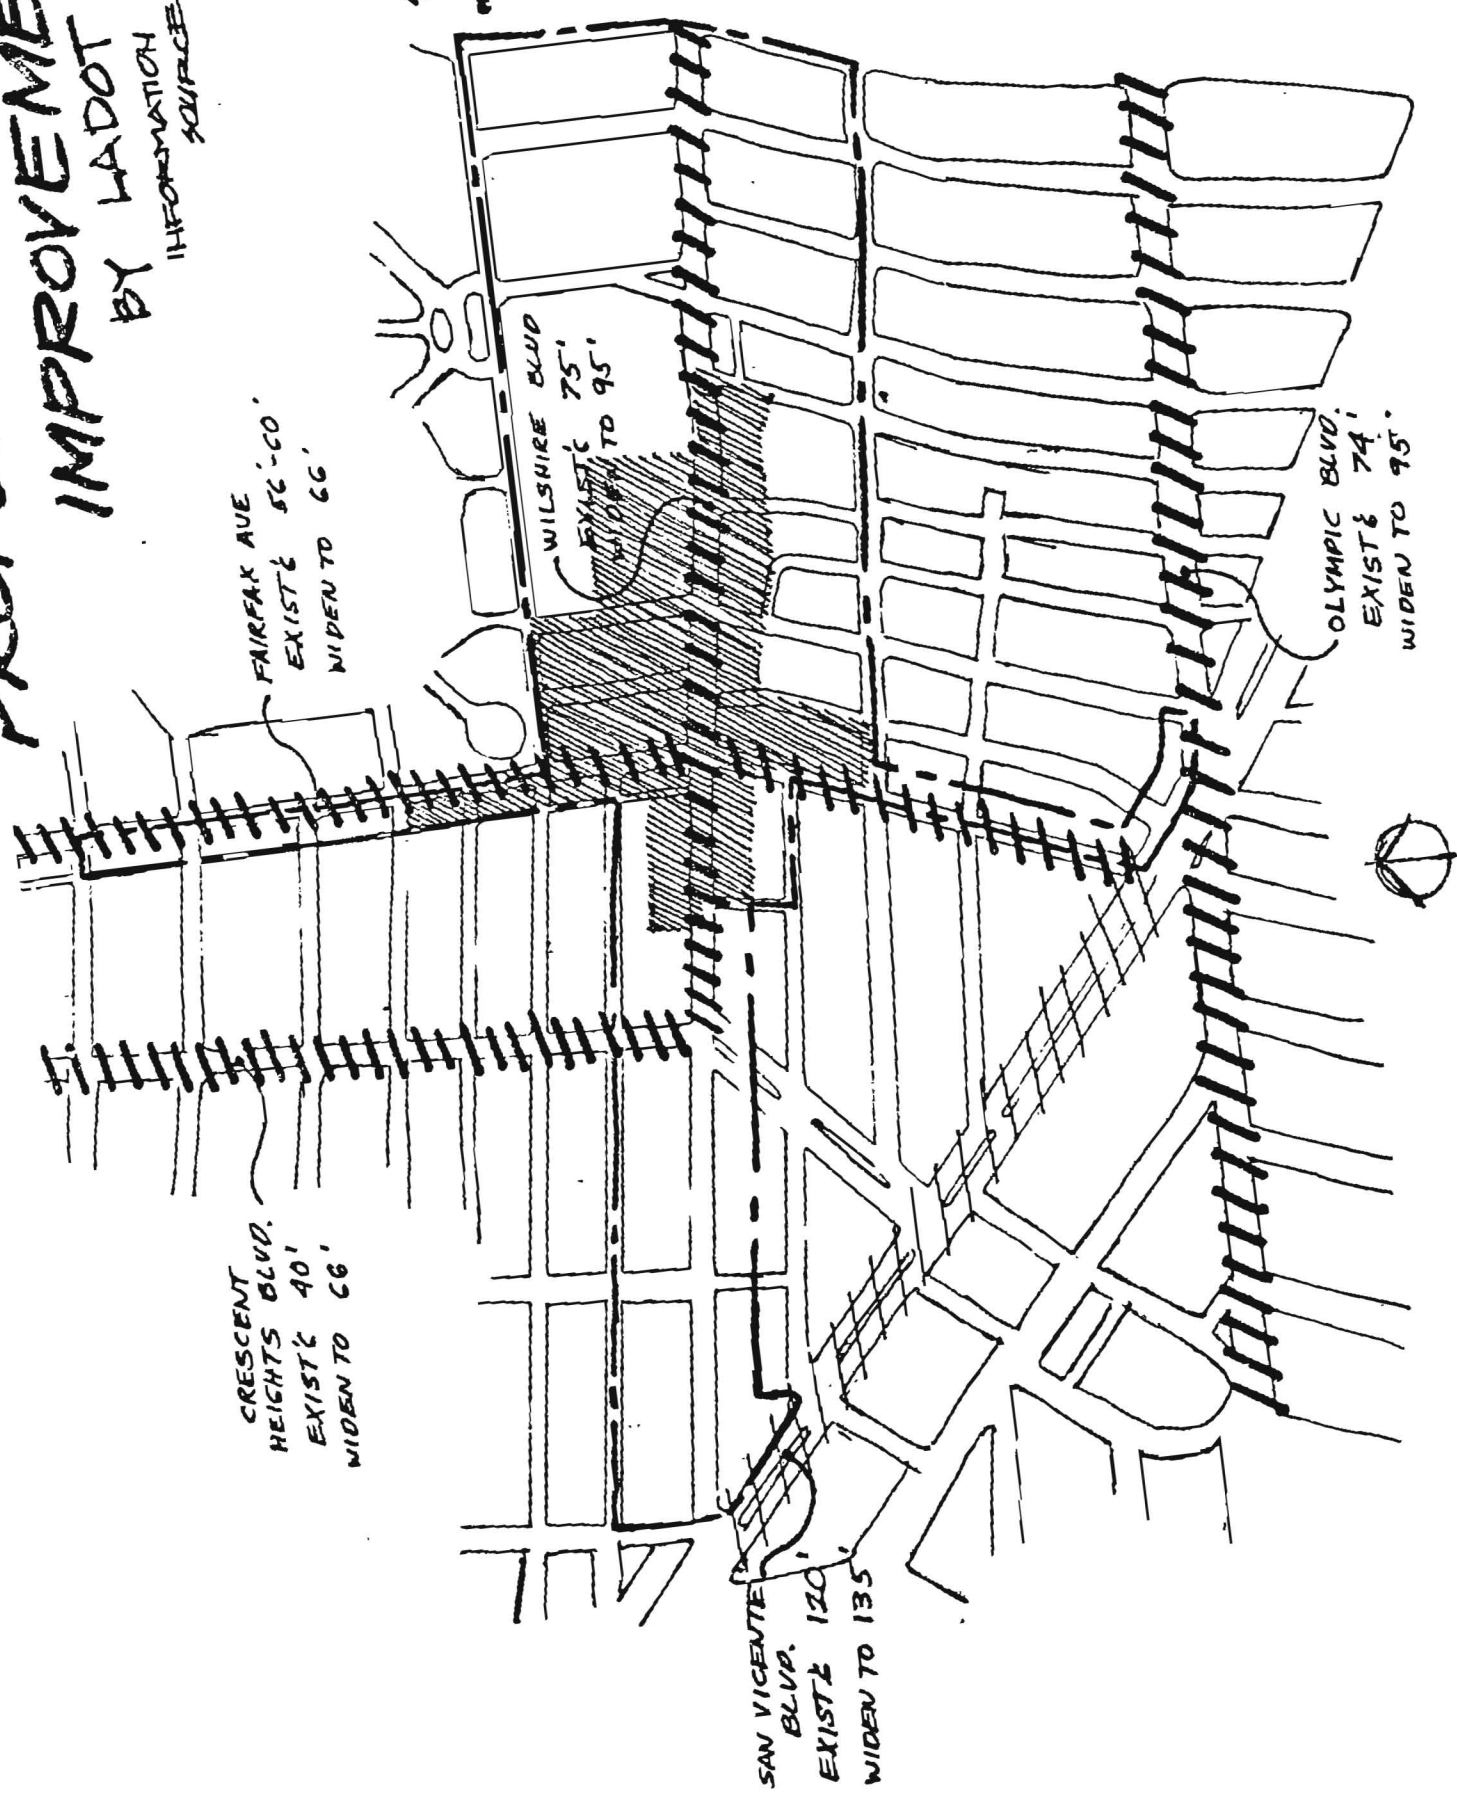 IMPROVEME
BY LADOT
INFORMATION
SOURCE
FAIRFAX AVE
EXIST'G 56'-60'
WIDEN TO 66'
WILSHIRE BLVD
EXIST'G 75'
WIDEN TO 95'
CRESCENT
HEIGHTS BLVD.
EXIST'G 40'
WIDEN TO 66'
OLYMPIC BLVD.
EXIST'G 74'
WIDEN TO 95'
SAN VICENTE
BLVD.
EXIST'G 120'
WIDEN TO 135'